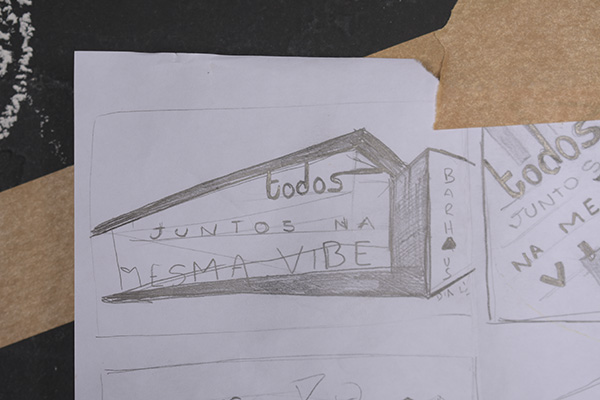 todos
JUNTOS NA
MESMA VIBE
BARHAUS
todos
JUNTOS
NA ME